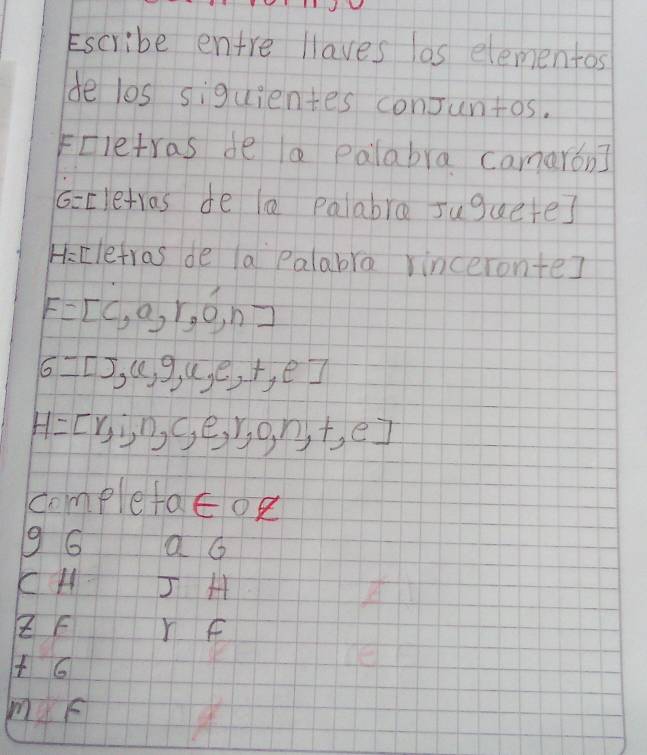 Escribe entre llaves los elementos
de los siguientes conjuntos.
F[letras de la palabra camarón]
G=[letras de la palabra juguete]
H=[letras de la palabra rinceronte]
F=[c,a,r,ó,n]
G=[J,u,g,u,e,t,e]
H=[r,i,n,c,e,r,o,n,t,e]
completa ∈ o ∉
g G a G
c H J H
z F r F
t G
m F